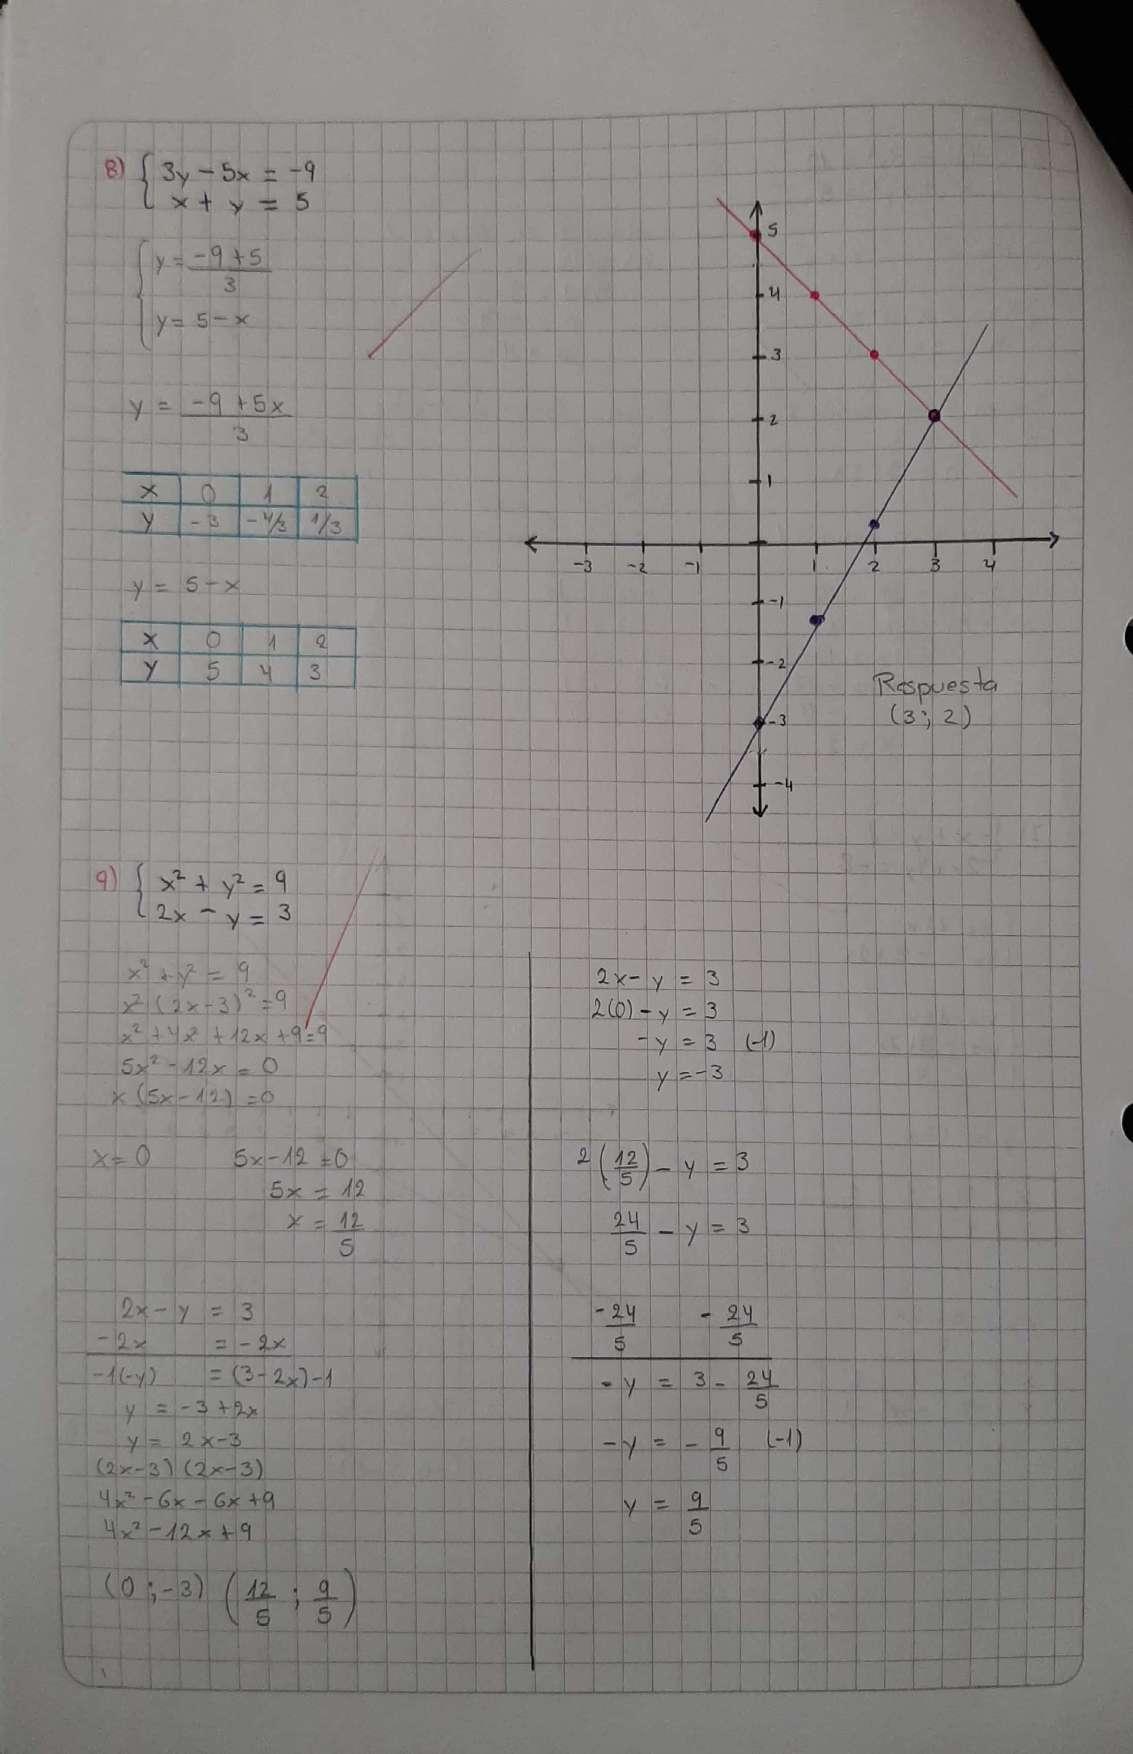 8) { 3y - 5x = -9
x + y = 5
{ y = -9 + 5 / 3
y = 5 - x
y = -9 + 5x / 3
X 0 1 2
Y -3 -4/3 1/3
y = 5 - x
X 0 1 2
Y 5 4 3
5
4
3
2
1
-3 -2 -1 1 2 3 4
-1
-2
-3
-4
Respuesta
(3; 2)
9) { x² + y² = 9
2x - y = 3
x² + y² = 9
x² (2x-3)² = 9
x² + 4x² + 12x + 9 = 9
5x² - 12x = 0
x (5x - 12) = 0
x = 0 5x - 12 = 0
5x = 12
x = 12/5
2x - y = 3
-2x = -2x
-1(-y) = (3 - 2x) -1
y = -3 + 2x
y = 2x - 3
(2x-3) (2x-3)
4x² - 6x - 6x + 9
4x² - 12x + 9
(0 ; -3) (12/5 ; 9/5)
2x - y = 3
2(0) - y = 3
-y = 3 (-1)
y = -3
2(12/5) - y = 3
24/5 - y = 3
-24/5 -24/5
-y = 3 - 24/5
-y = -9/5 (-1)
y = 9/5